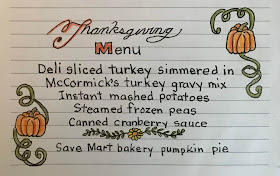 Thanksgiving
Menu
Deli sliced turkey simmered in
McCormick's turkey gravy mix
Instant mashed potatoes
Steamed frozen peas
Canned cranberry sauce
Save Mart bakery pumpkin pie